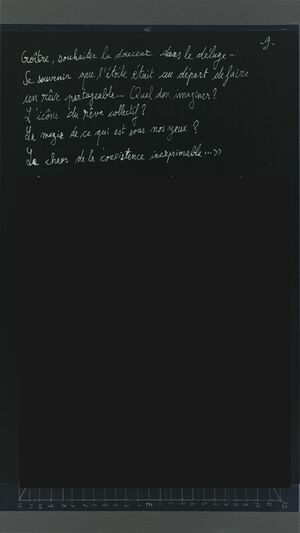 -9-
Croître, souhaiter la douceur dans le déluge...
Se souvenir que l'étoile était au départ de faire
un rêve partageable... Quel don imaginer?
L'icône du rêve collectif?
La magie de ce qui est sous nos yeux?
Le chaos de la coexistence inexprimable...»